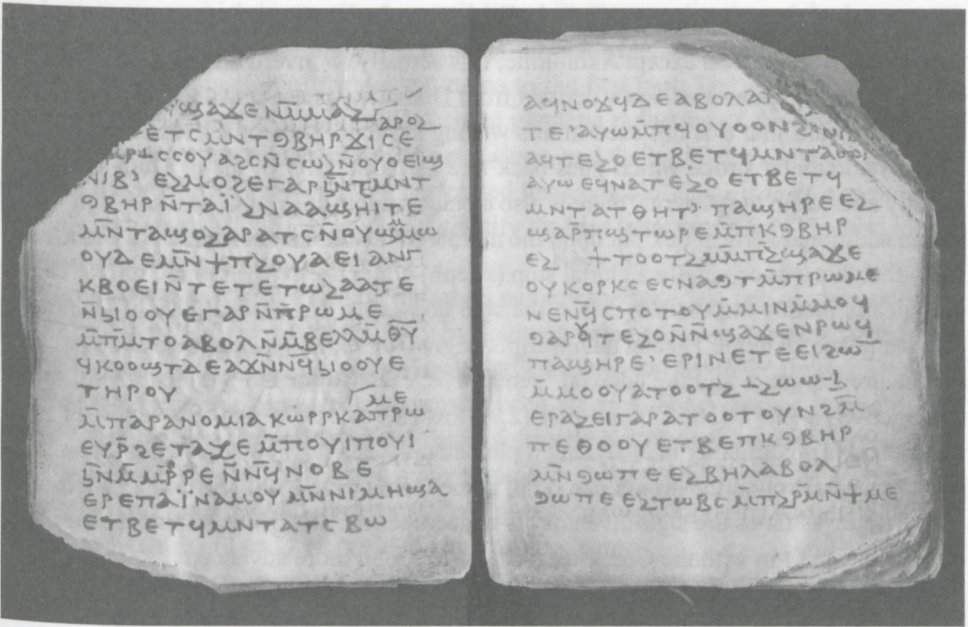 ϣⲁϫⲉⲛⲙ̄ⲙⲁⲹ
ⲁⲣⲟⲹ
ⲉⲧⲥⲙⲛⲧⳋⲃⲏⲣϫⲓⲥⲉ
ⲥⲟⲩⲁϩⲥⲛ̄ⲥⲱⲹⲛ̄ⲟⲩⲟⲉⲓϣ
ⲛⲓⲃⲓ ⲉⲹⲙⲟϩⲉⲅⲁⲣⳉⲛ̄ⲧⲙⲛⲧ
ⳋⲃⲏⲣⲛ̄ⲧⲁⲓ̈ⲹⲛⲁⲁϣⲏⲓ̈ⲧⲉ
ⲙ̄ⲛⲧⲁϣⲟⲹⲁⲣⲁⲧⲥⲛ̄ⲟⲩϣⲙ̄ⲙⲱ
ⲟⲩⲇⲉⲙ̄ⲛϯⲡⲹⲟⲩⲁⲉⲓⲁⲛⲅ
ⲕⲃⲟⲉⲓⲛ̄ⲧⲉⲧⲉⲧⲱⲹⲁⲁⲧⲉ
ⲛ̄ⳉⲓⲟⲟⲩⲉⲅⲁⲣⲛ̄ⲡ̄ⲣⲱⲙⲉ
ⲙ̄ⲡⲙ̄ⲧⲟⲁⲃⲟⲗⲛ̄ⲙ̄ⲃⲉⲗⲙ̄ⲑ̄ⲩ̄
ϥⲕⲟⲟϣⲧⲇⲉⲁϫⲛ̄ⲛϥⳉⲓⲟⲟⲩⲉ
ⲧⲏⲣⲟⲩ
ⲙⲉ
ⲙ̄ⲡⲁⲣⲁⲛⲟⲙⲓⲁⲕⲱⲣⲣⲕⲁⲡⲣⲱ
ⲉⲩⲣ̄ϩⲉⲧⲁϫⲉⲙ̄ⲡⲟⲩⲓⲡⲟⲩⲓ
ⳉⲛ̄ⲙ̄ⲙ̄ⲣⲣⲉⲛ̄ⲛϥⲛⲟⲃⲉ
ⲉⲣⲉⲡⲁⲓ̈ⲛⲁⲙⲟⲩⲙⲛ̄ⲛⲓⲙⲏϣⲁ
ⲉⲧⲃⲉⲧϥⲙⲛⲧⲁⲧⲥⲃⲱ
ⲁϥⲛⲟϫϥⲇⲉⲁⲃⲟⲗ
ⲧⲉ·ⲁⲩⲱⲙ̄ⲡϥⲟⲩⲟⲟⲛϩ
ⲁϥⲧⲉⲹⲟⲉⲧⲃⲉⲧϥⲙⲛⲧ
ⲁⲩⲱⲉϥⲛⲁⲧⲉⲹⲟⲉⲧⲃⲉⲧϥ
ⲙⲛⲧⲁⲧⲑⲏⲧ· ⲡⲁϣⲏⲣⲉⲉⲹ
ϣⲁⲣ̄ⲡϣⲧⲱⲣⲉⲙ̄ⲡⲕⳋⲃⲏⲣ
ⲉⲹ ϯⲧⲟⲟⲧⲹⲙ̄ⲙ̄ⲡⲹϣⲁϫⲉ
ⲟⲩⲕⲟⲣⲕⲥⲉⲥⲛⲁⳋⲧⲙ̄ⲡⲣⲱⲙⲉ
ⲛⲉⲛϥ̄ⲥⲡⲟⲧⲟⲩⲙ̄ⲙⲓⲛⲙ̄ⲙⲟϥ
ⳋⲁⲣϥⲧⲉⲹⲟⲛ̄ⲛ̄ϣⲁϫⲉⲛⲣⲱϥ
ⲡⲁϣⲏⲣⲉ· ⲉⲣⲓⲛⲉⲧⲉⲉⲓϩⲱ̄
ⲙ̄ⲙⲟⲟⲩⲁⲧⲟⲟⲧⲹⲳⲹⲱⲱ
ⲉⲣⲁⲹⲉⲓⲅⲁⲣⲁⲧⲟⲟⲧⲟⲩⲛϩⲙ̄
ⲡⲉⲑⲟⲟⲩⲉⲧⲃⲉⲡⲕⳋⲃⲏⲣ
ⲙⲛ̄ⳋⲱⲡⲉⲉⲹⲃⲏⲗⲁⲃⲟⲗ
ⳋⲱⲡⲉⲉⲹⲧⲱⲃⲥⲙ̄ⲡⲹⲣ̄ⲙⲛ̄ϯⲙⲉ